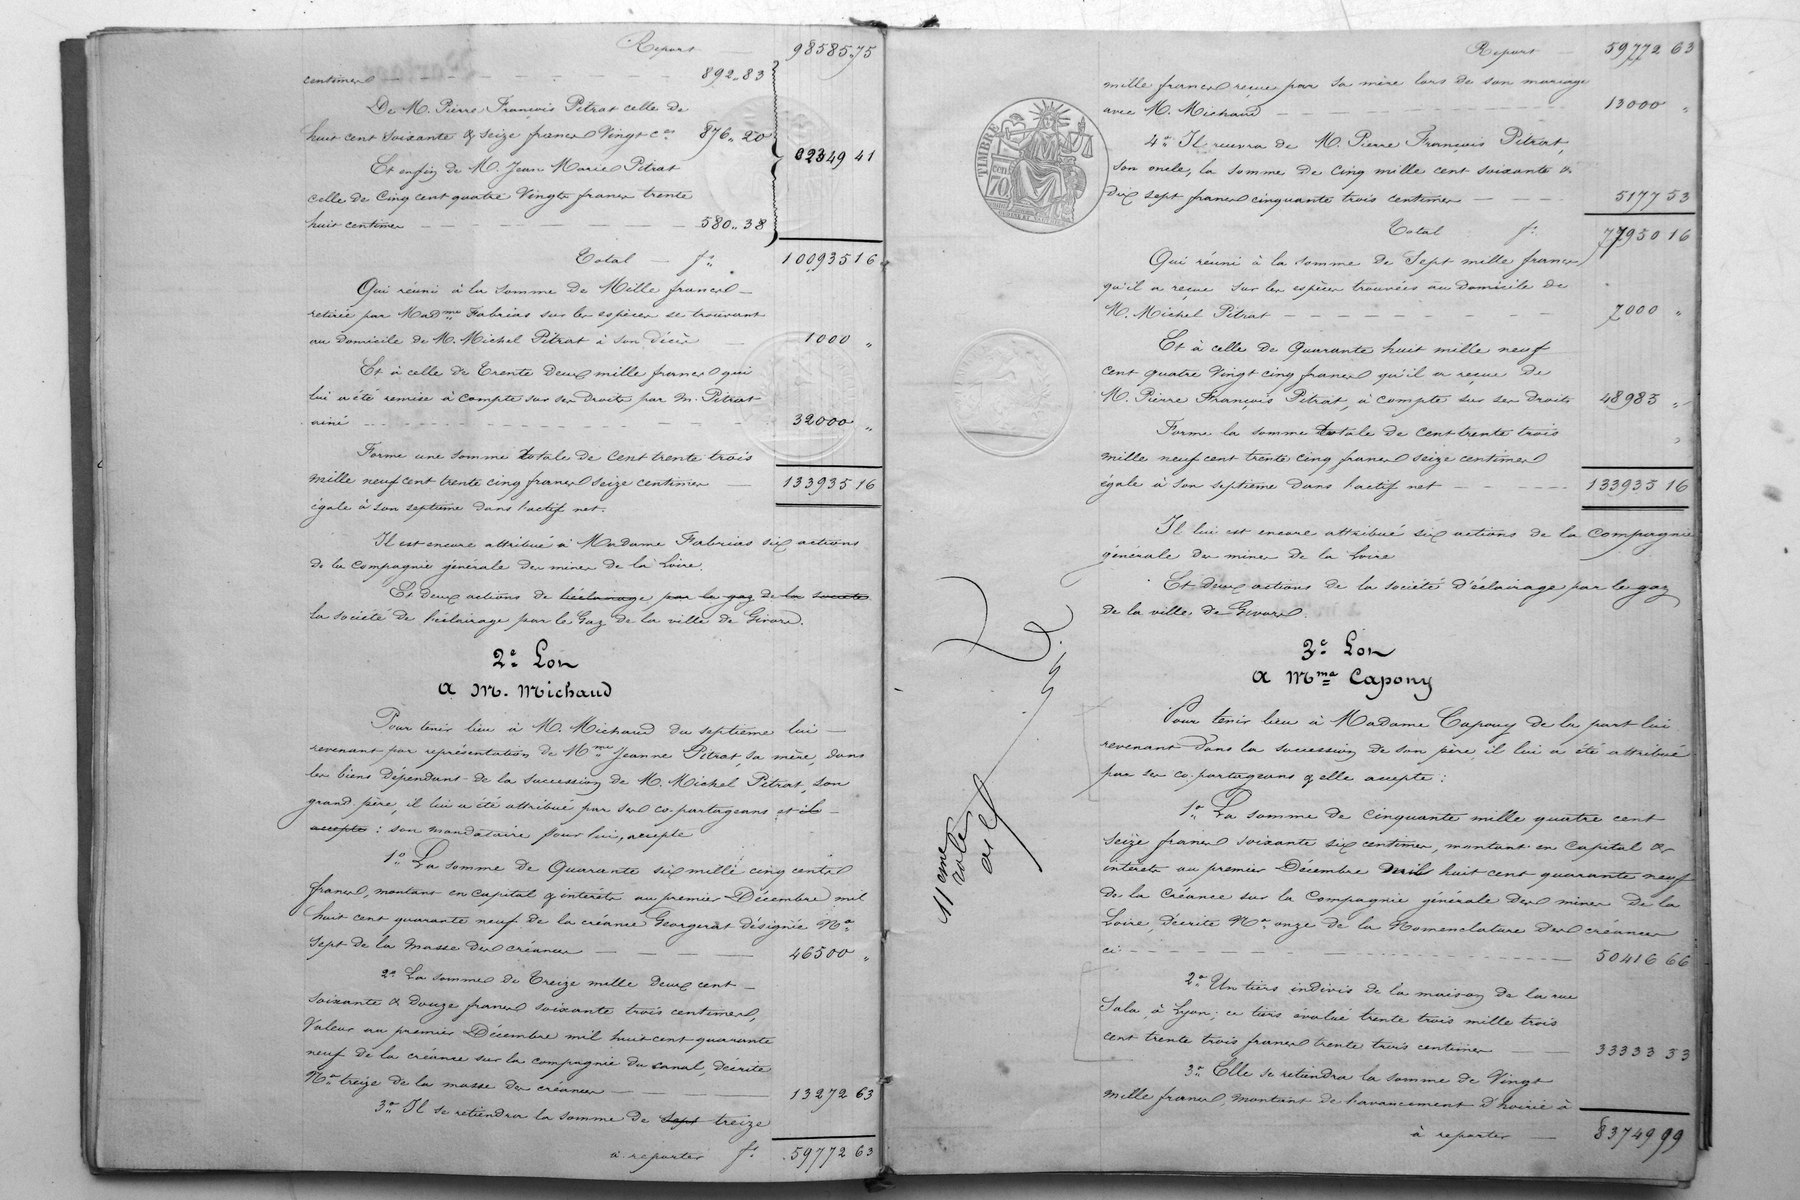 Report — 98585.75
centimes — 892..83
De M. Pierre François Pitrat celle de
huit cent soixante & seize francs Vingt ces 876..20
02349 41
Et enfin de M. Jean Marie Pitrat
celle de Cinq cent quatre Vingts francs trente
huit centimes — 580..38
Total — fs 100935 16
Qui réuni à la somme de Mille francs —
retirée par Madme Fabrias sur les espèces se trouvant
au domicile de M. Michel Pitrat à son décès — 1000 "
Et à celle de Trente deux mille francs qui
lui a été remise à compte sur ses droits par M. Pitrat
ainé — 32000 "
Forme une somme totale de Cent trente trois
mille neuf cent trente cinq francs seize centimes — 133935 16
égale à son septième dans l'actif net.
Il est encore attribué à Madame Fabrias six actions
de la Compagnie générale des mines de la Loire.
Et deux actions de l'éclairage par le gaz de la société
la société de l'éclairage par le Gaz de la ville de Givors.
2e Lot
a M. Michaud
Pour tenir lieu à M. Michaud du septième lui —
revenant par représentation de Mme Jeanne Pitrat, sa mère, dans
les biens dépendant de la succession de M. Michel Pitrat, son
grand-père, il lui a été attribué par ses co-partageans et il —
accepte : son mandataire pour lui, accepte
1o La somme de Quarante six mille cinq cents
francs, montant en capital & intérêts au premier Décembre mil
huit cent quarante neuf de la créance Georgerat désignée No
sept de la masse des créances — 46500 "
2o La somme de Treize mille deux cent —
soixante & douze francs soixante trois centimes,
Valeur au premier Décembre mil huit cent quarante
neuf de la créance sur la compagnie du canal, décrite
No treize de la masse des créances — 13272 63
3o Il se retiendra la somme de sept treize
à reporter fs 59772 63
Report — 59772 63
mille francs reçue par sa mère lors de son mariage
avec M. Michaud — 13000 "
4o Il recevra de M. Pierre François Pitrat,
son oncle, la somme de Cinq mille cent soixante &
dix sept francs cinquante trois centimes — 5177 53
TIMBRE
70 cen
Total fs 77950 16
Qui réuni à la somme de Sept mille francs
qu'il a reçue sur les espèces trouvées au domicile de
M. Michel Pitrat — 7000 "
Et à celle de Quarante huit mille neuf
cent quatre Vingt cinq francs qu'il a reçue de
M. Pierre François Pitrat, à compte sur ses droits 48985 "
Forme la somme totale de Cent trente trois
mille neuf cent trente cinq francs seize centimes
égale à son septième dans l'actif net — 133935 16
Il lui est encore attribué six actions de la Compagnie
générale des mines de la Loire
Et deux actions de la société d'éclairage par le gaz
de la ville de Givors.
11eme role
3e Lot
a Mme Capony
Pour tenir lieu à Madame Capony de la part lui
revenant dans la succession de son père, il lui a été attribué
par ses co-partageans & elle accepte :
1o La somme de cinquante mille quatre cent
seize francs soixante six centimes, montant en Capital &
intérêts au premier Décembre mil huit cent quarante neuf
de la Créance sur la Compagnie générale des mines de la
Loire, décrite No onze de la Nomenclature des créances
ci — 50416 66
2o Un tiers indivis de la maison de la rue
Sala, à Lyon ; ce tiers évalué trente trois mille trois
cent trente trois francs trente trois centimes — 33333 33
3o Elle se retiendra la somme de Vingt
mille francs, montant de l'avancement d'hoirie à
à reporter — 83749 99